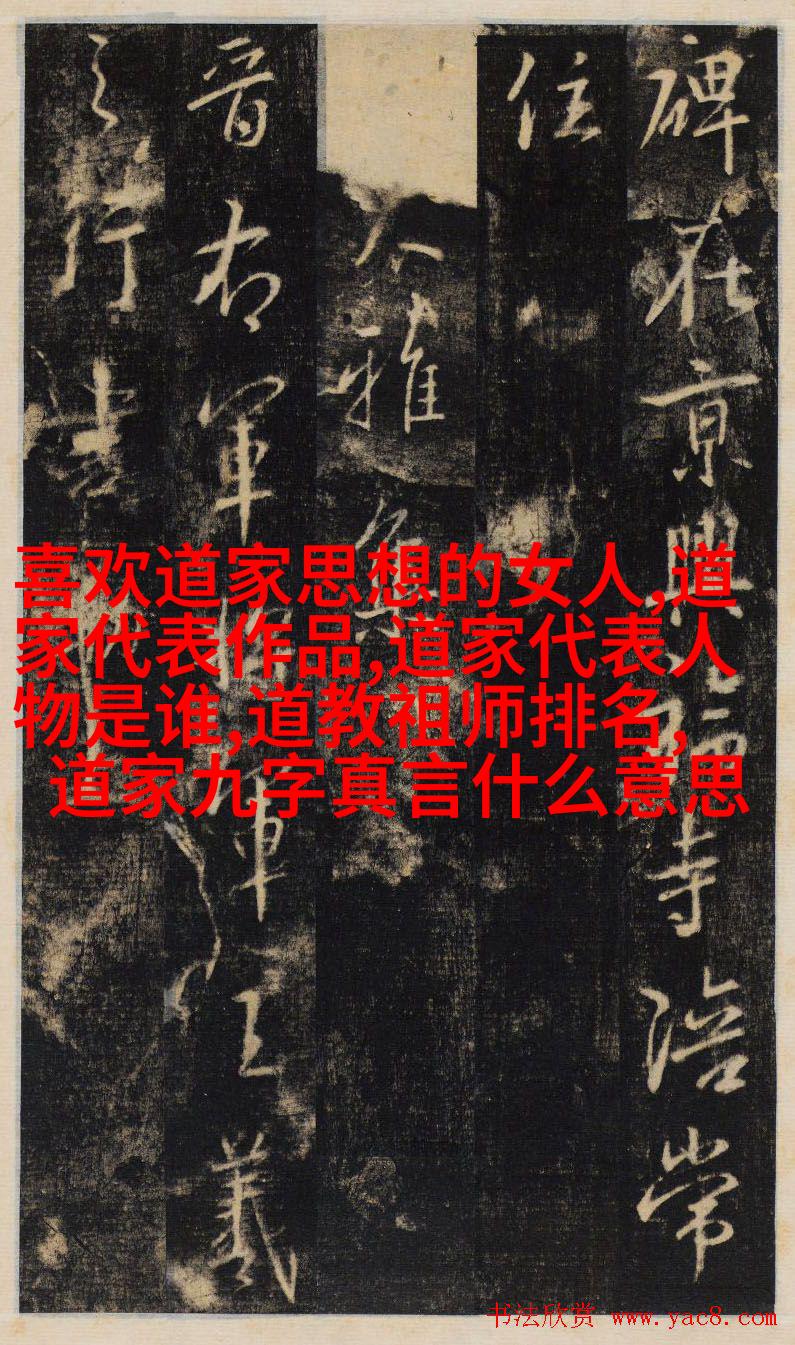 碑在京興寺陪常
住
雅
晋右軍將軍王羲
之行書
喜欢道家思想的女人,道
家代表作品,道家代表人
物是谁,道教祖师排名,
道家九字真言什么意思
书法欣赏 www.yac8.com